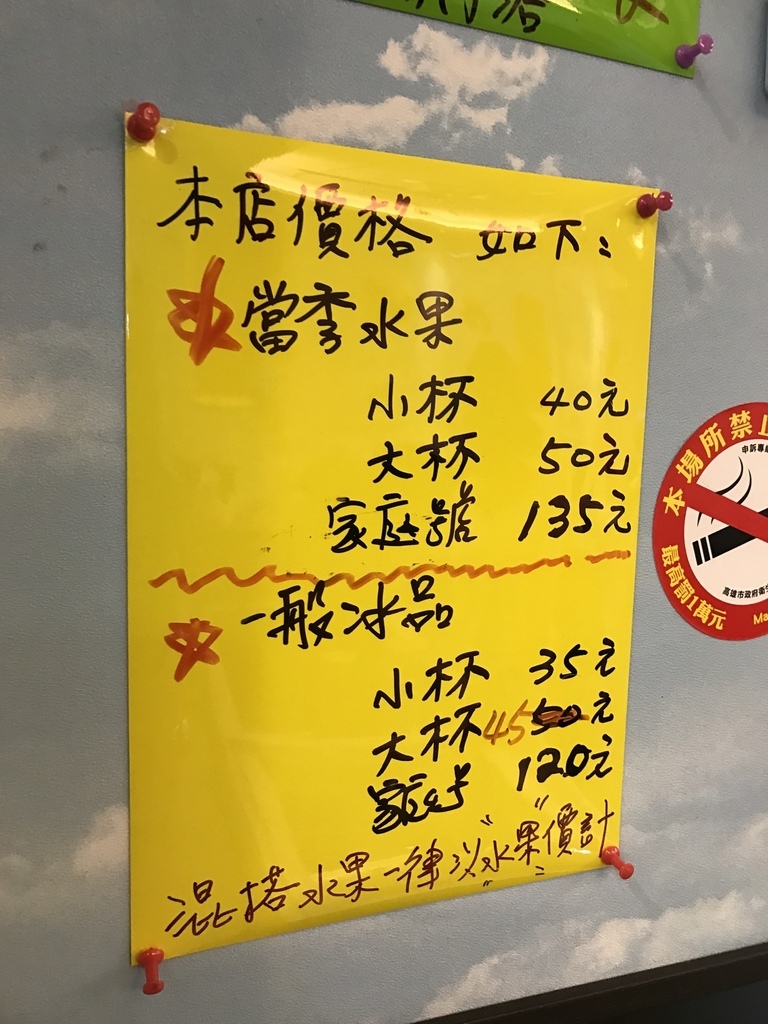 本店價格 如下:
當季水果
小杯 40元
大杯 50元
家庭號 135元
一般冰品
小杯 35元
大杯 45 50元
家庭号 120元
混搭水果一律以"水果"價計
本場所禁止
申訴專線
高雄市政府衛生
最高罰1萬元
Ma